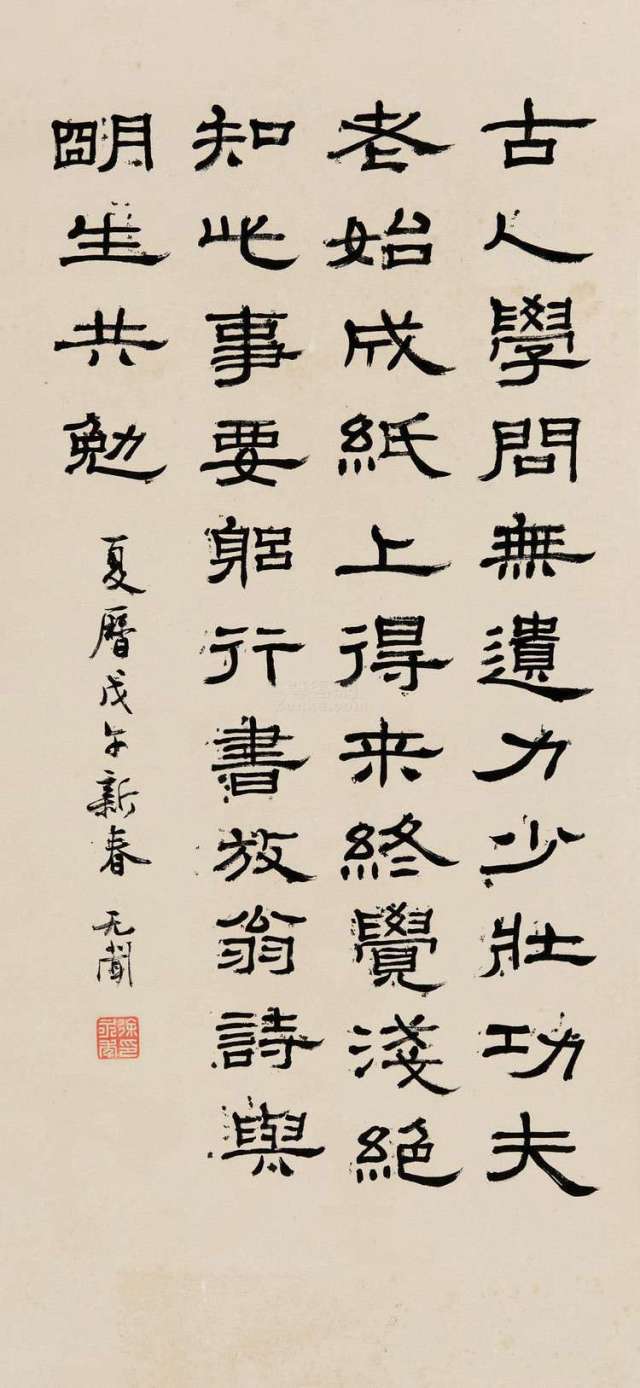 古人學問無遺力少壯功夫
老始成紙上得来終覺淺絕
知此事要躬行書放翁詩與
朙生共勉
夏曆戊午新春 无聞
徐永年印